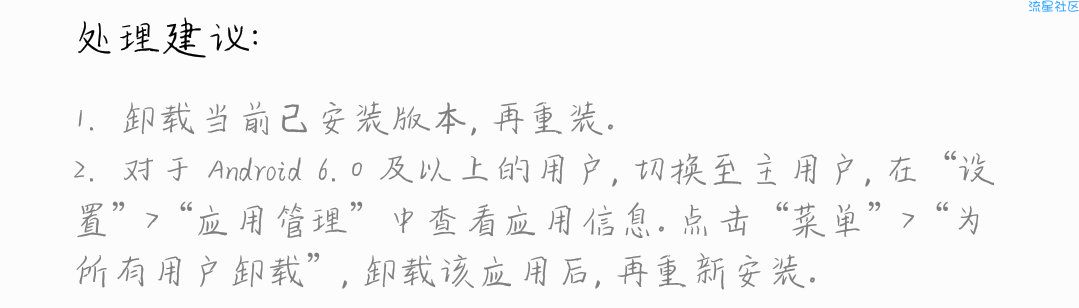 流星社区
处理建议:
1. 卸载当前已安装版本, 再重装。
2. 对于 Android 6.0 及以上的用户, 切换至主用户, 在“设
置”>“应用管理”中查看应用信息。点击“菜单”>“为
所有用户卸载”, 卸载该应用后, 再重新安装。